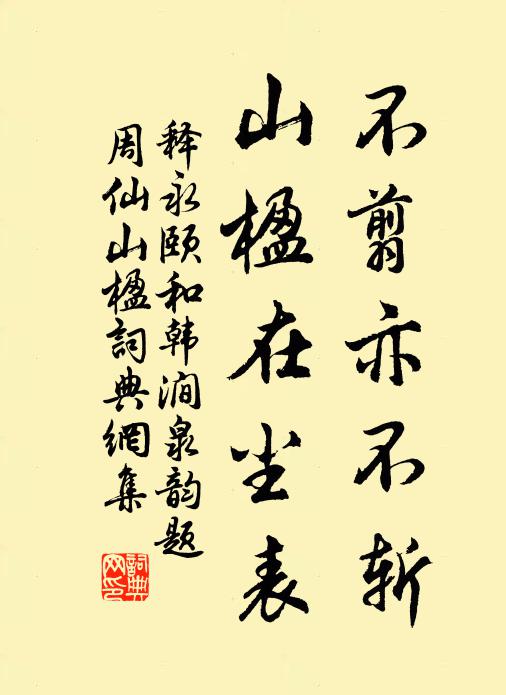 不翦亦不斩
山楹在尘表
释永颐和韩涧泉韵题
周仙山楹詞典網集
詞典网印